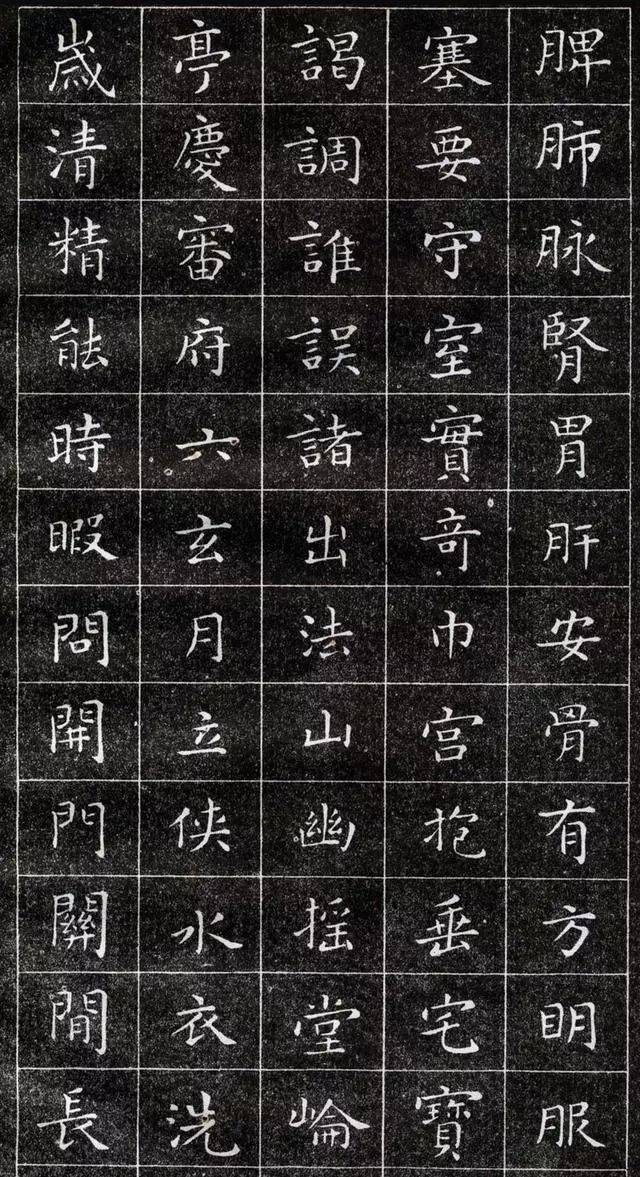 脾肺脉腎胃肝安骨有方明服
塞要守室實奇巾宫抱垂宅寶
謁調誰誤諸出法山幽摇堂崘
亭慶審府六玄月立侠水衣洗
歲清精能時暇問開門關閒長